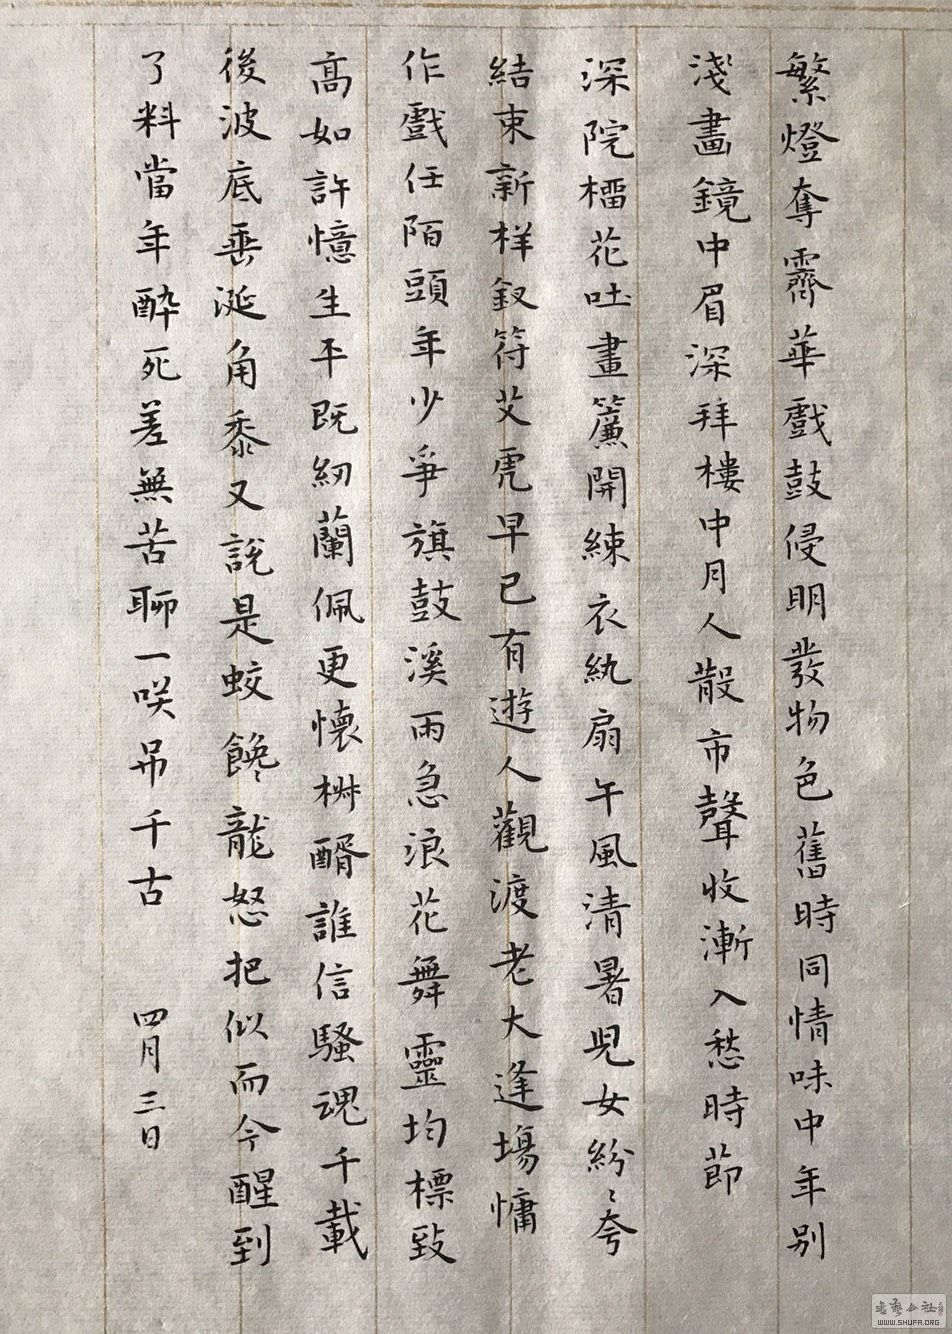 繁燈奪霽華戲鼓侵明發物色舊時同情味中年别
淺畫鏡中眉深拜樓中月人散市聲收漸入愁時節
深院榴花吐畫簾開練衣紈扇午風清暑兒女紛〻夸
結束新样釵符艾虎早已有遊人觀渡老大逢場慵
作戲任陌頭年少爭旗鼓溪雨急浪花舞靈均標致
高如許憶生平既紉蘭佩更懷椒醑誰信騷魂千載
後波底垂涎角黍又說是蛟饞龍怒把似而今醒到
了料當年醉死差無苦聊一咲吊千古
四月三日
書藝公社
WWW.SHUFA.ORG